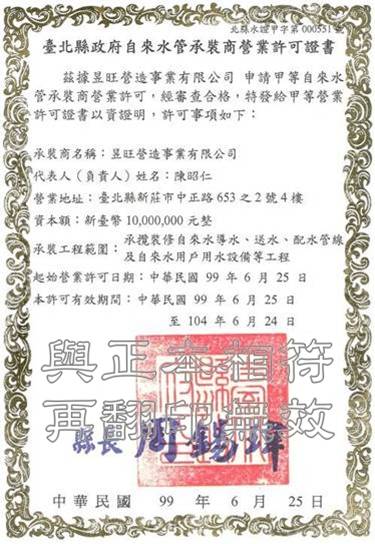 北縣水證甲字第 000551 號
臺北縣政府自來水管承裝商營業許可證書
茲據昱旺營造事業有限公司 申請甲等自來水
管承裝商營業許可，經審查合格，特發給甲等營業
許可證書以資證明，許可事項如下：
承裝商名稱：昱旺營造事業有限公司
代表人（負責人）姓名：陳昭仁
營業地址：臺北縣新莊市中正路 653 之 2 號 4 樓
資本額：新臺幣 10,000,000 元整
承裝工程範圍：承攬裝修自來水導水、送水、配水管線
及自來水用戶用水設備等工程
起始營業許可日期：中華民國 99 年 6 月 25 日
本許可有效期間：中華民國 99 年 6 月 25 日
至 104 年 6 月 24 日
與正本相符
再翻印無效
縣長 周錫瑋
中華民國 99 年 6 月 25 日